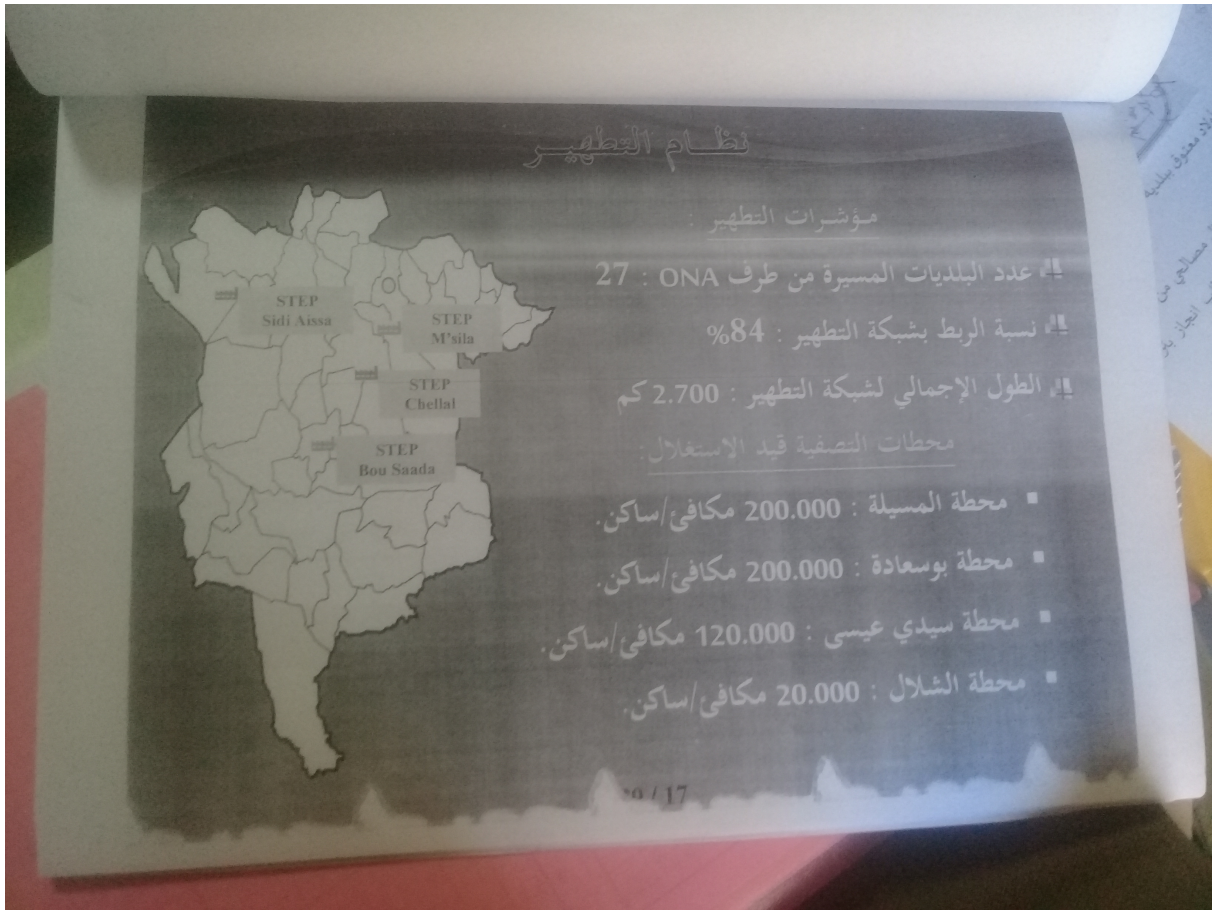 نظام التطهير
مؤشرات التطهير :
عدد البلديات المسيرة من طرف ONA : 27
نسبة الربط بشبكة التطهير : 84%
الطول الإجمالي لشبكة التطهير : 2.700 كم
محطات التصفية قيد الاستغلال:
▪ محطة المسيلة : 200.000 مكافئ/ساكن.
▪ محطة بوسعادة : 200.000 مكافئ/ساكن.
▪ محطة سيدي عيسى : 120.000 مكافئ/ساكن.
▪ محطة الشلال : 20.000 مكافئ/ساكن.
STEP
Sidi Aissa
STEP
M'sila
STEP
Chellal
STEP
Bou Saada
/ 17